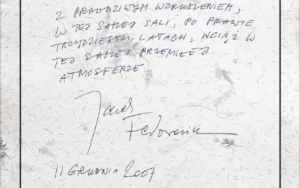 Z PRAWDZIWYM WZRUSZENIEM,
W TEJ SAMEJ SALI, PO PRAWIE
TRZYDZIESTU LATACH, WCIĄŻ W
TEJ SAMEJ PRZEMIŁEJ
ATMOSFERZE
Jacek
Fedorowicz
11 GRUDNIA 2007